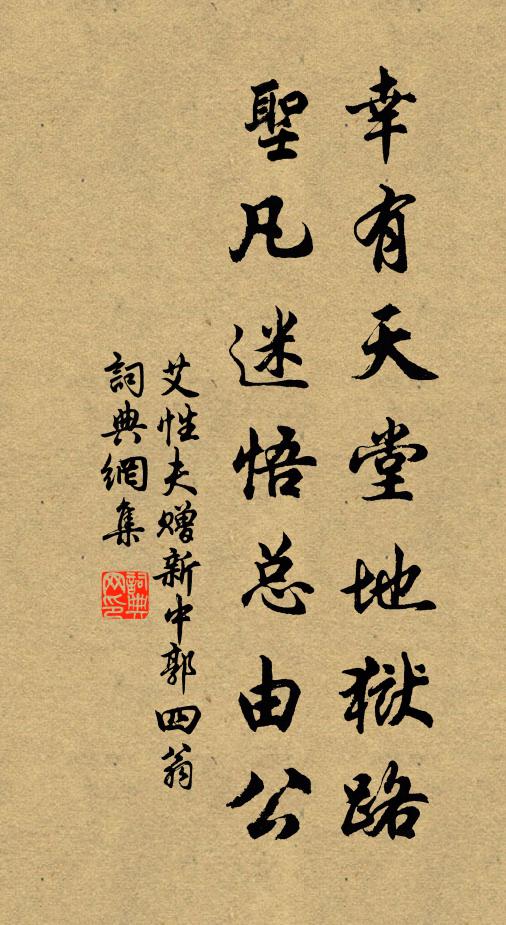 幸有天堂地獄路
聖凡迷悟总由公
艾性夫赠新中郭四翁
詞典網集
詞典网印